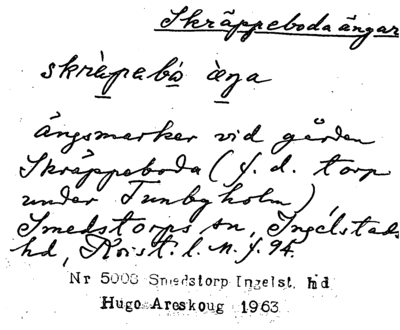 Skräppeboda ängar
skràpabò àŋa
ängsmarker vid gården
Skräppeboda (f. d. torp
under Tunbyholm),
Smedstorps sn, Ingelstads
hd, Krist. l. M. f. 94.
Nr 5003 Smedstorp Ingelst. hd
Hugo Areskoug 1963